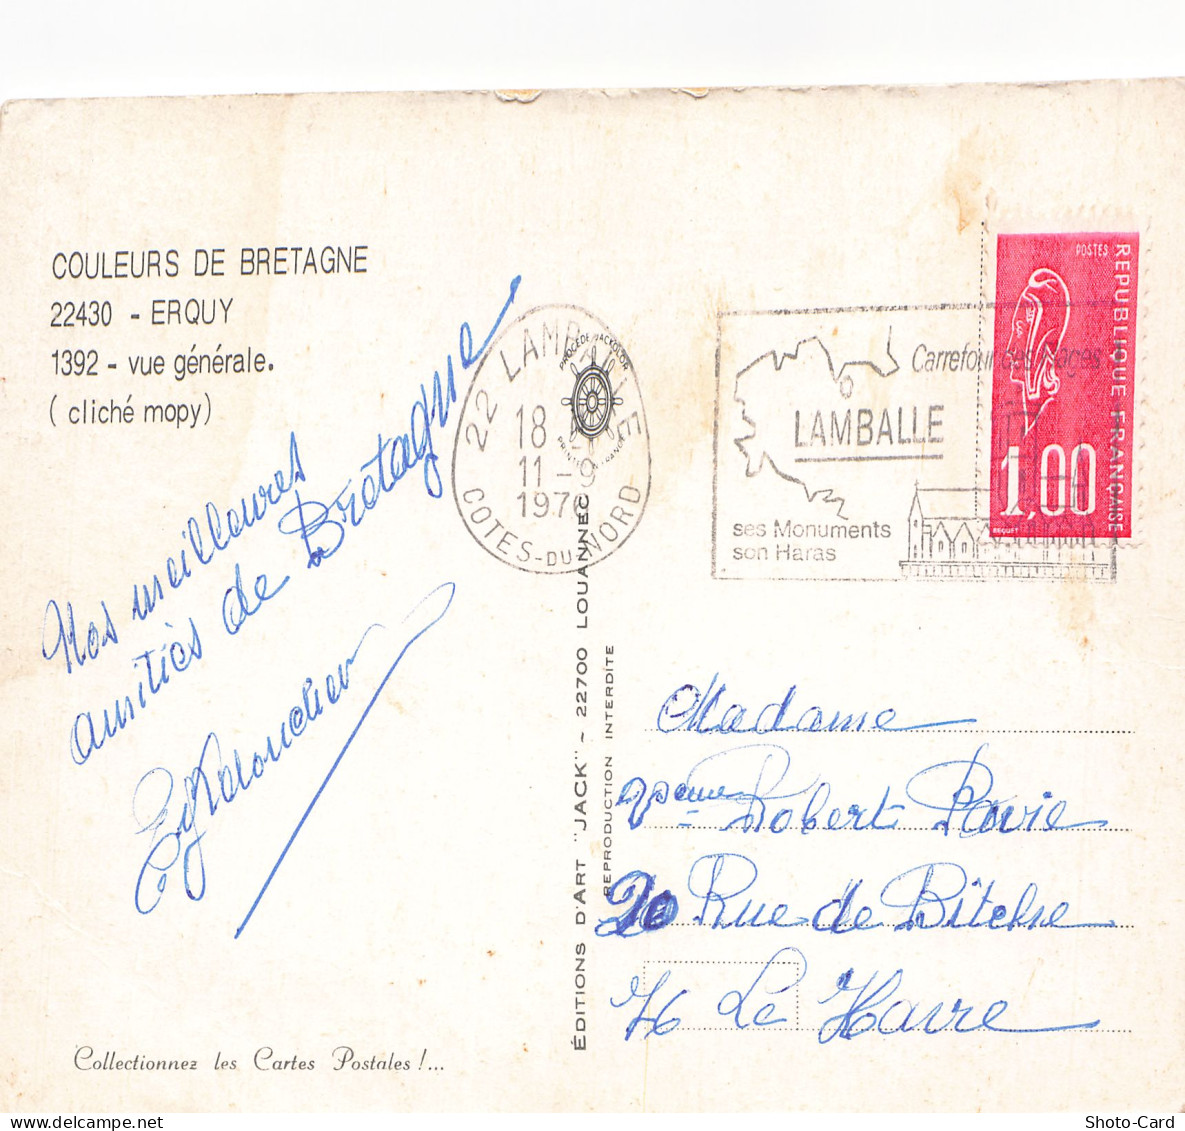 COULEURS DE BRETAGNE
22430 - ERQUY
1392 - vue générale.
( cliché mopy)
Nos meilleures
amitiés de Bretagne
22 LAMBALLE
18 H
11 - 9
1976
COTES-DU-NORD
PROCÉDÉ JACKOLOR
Carrefour des Plages
LAMBALLE
ses Monuments
son Haras
POSTES
REPUBLIQUE FRANCAISE
1,00
BEQUET
ÉDITIONS D'ART "JACK" - 22700 LOUANNEC
REPRODUCTION INTERDITE
Madame
Robert Pavie
20 Rue de Bitche
76 Le Havre
Collectionnez les Cartes Postales !...
Shoto-Card